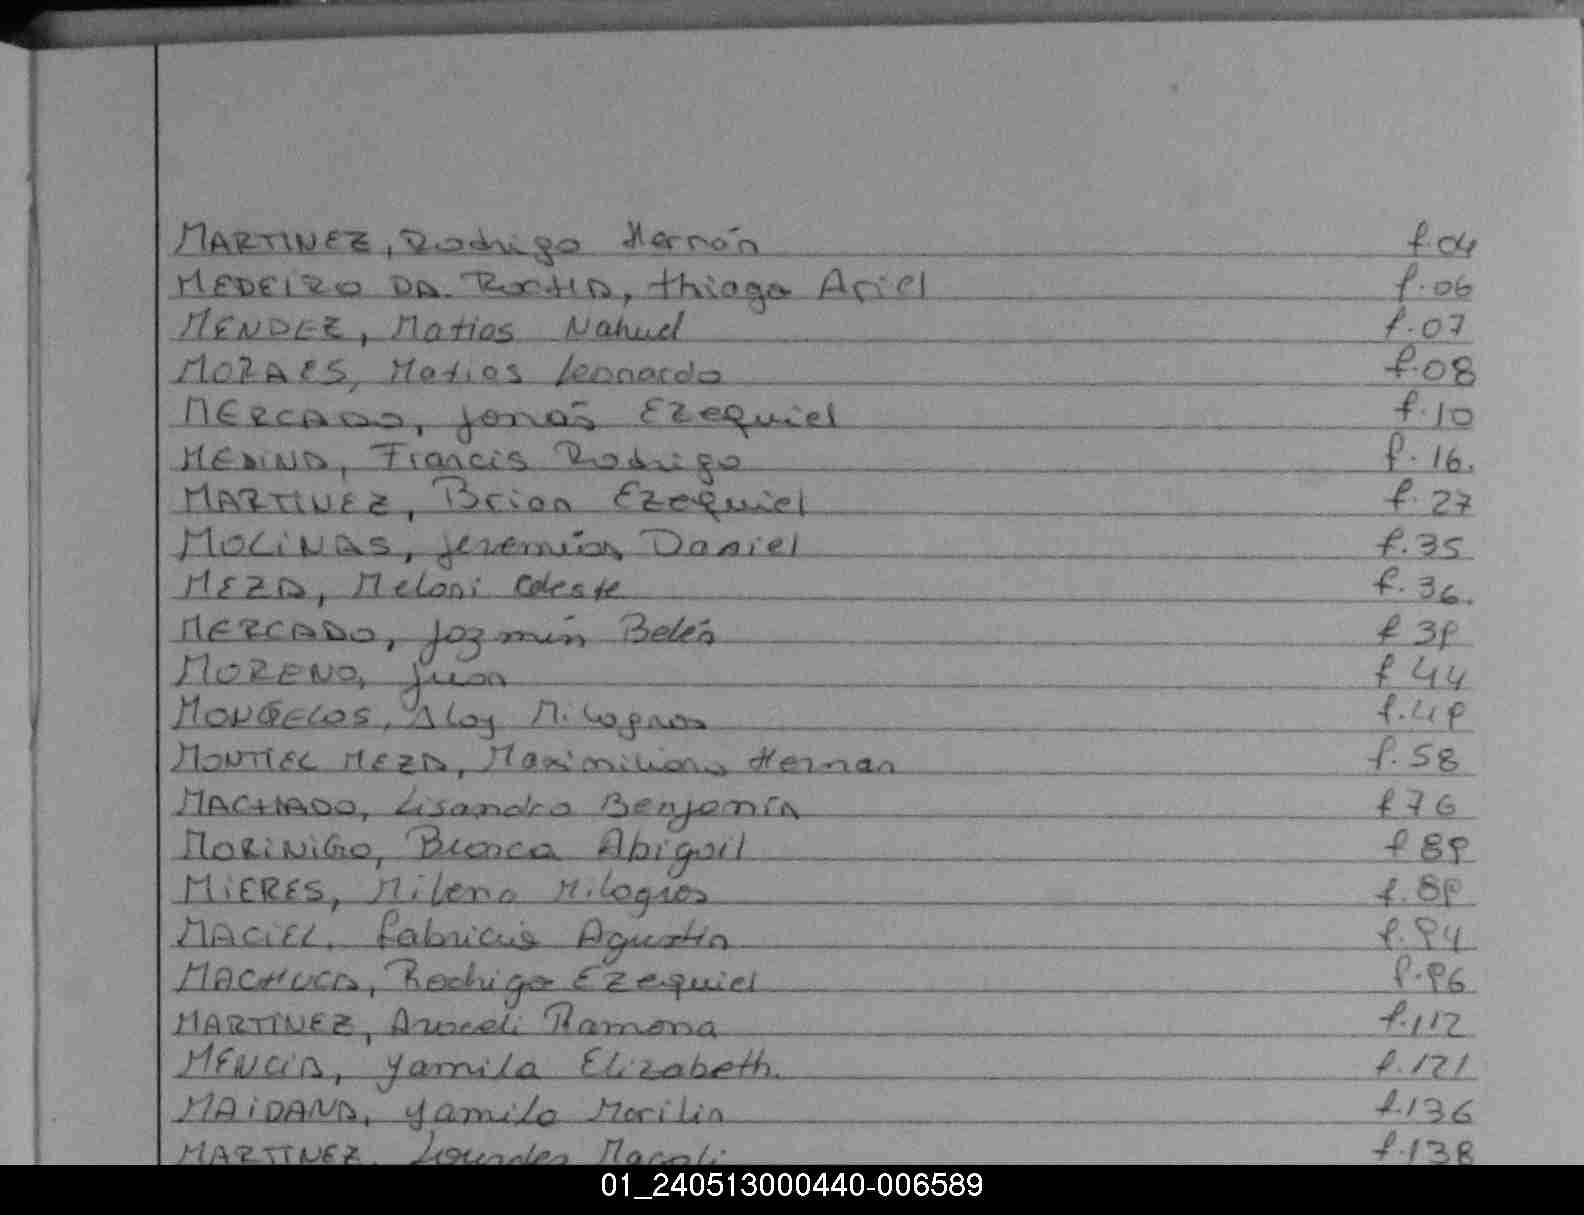 MARTINEZ, Rodrigo Hernán f.04
MEDEIRO DA ROCHA, thiago Ariel f.06
MENDEZ, Matias Nahuel f.07
MORAES, Matias Leonardo f.08
MERCADO, Jonás Ezequiel f.10
MEDINA, Francis Rodrigo f.16.
MARTINEZ, Brian Ezequiel f.27
MOLINAS, Jeremías Daniel f.35
MEZA, Melani Celeste f.36.
MERCADO, Jazmín Belén f 39
MORENO, Juan f 44
MONGELOS, Milagros f.49
MONTIEL MEZA, Maximiliano Hernan f.58
MACHADO, Lisandro Benjamín f 76
MORINIGO, Bianca Abigail f 89
MIERES, Milena Milagros f.89
MACIEL, fabricio Agustín f.94
MACHUCA, Rodrigo Ezequiel f.96
MARTINEZ, Araceli Ramona f.112
MENCIA, yamila Elizabeth. f.121
MAIDANA, yamila Marilin f.136
MARTINEZ, Lourdes Magali f.138
01_240513000440-006589